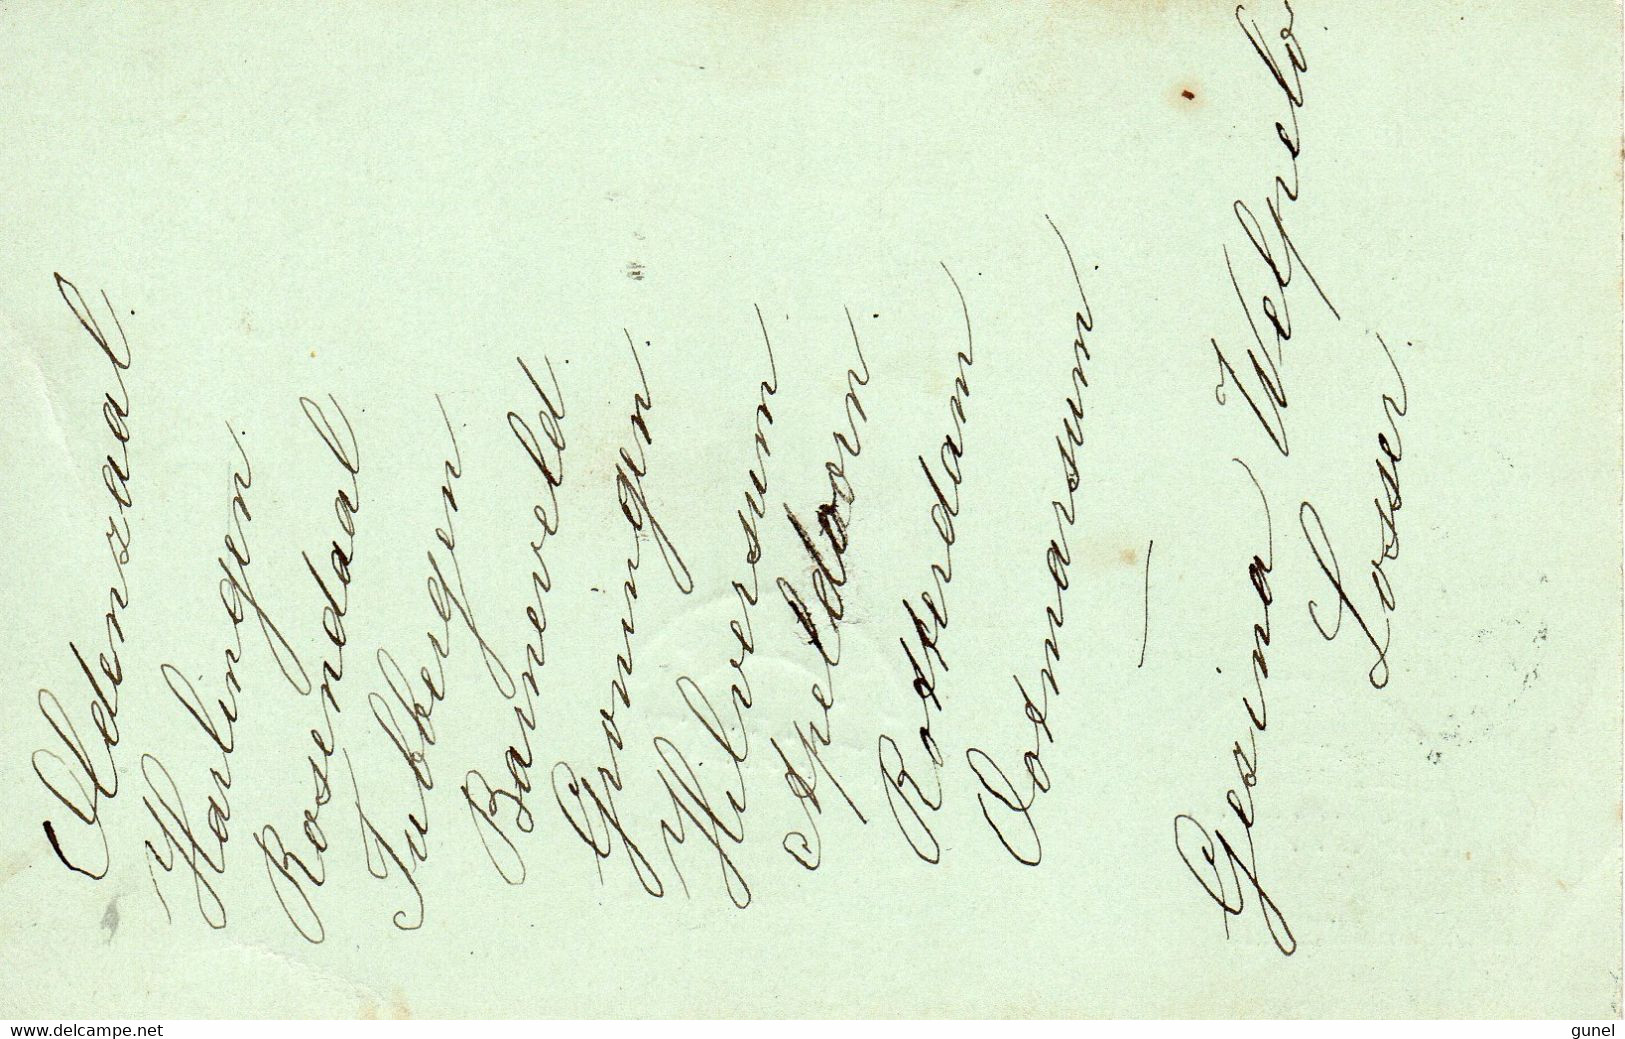 Oldenzaal.
Harlingen.
Rosendaal
Tubbergen.
Barneveld.
Groningen.
Hilversum.
Apeldoorn.
Rotterdam.
Ootmarsum.
Gesina Welpelo.
Losser.
www.delcampe.net
gunel